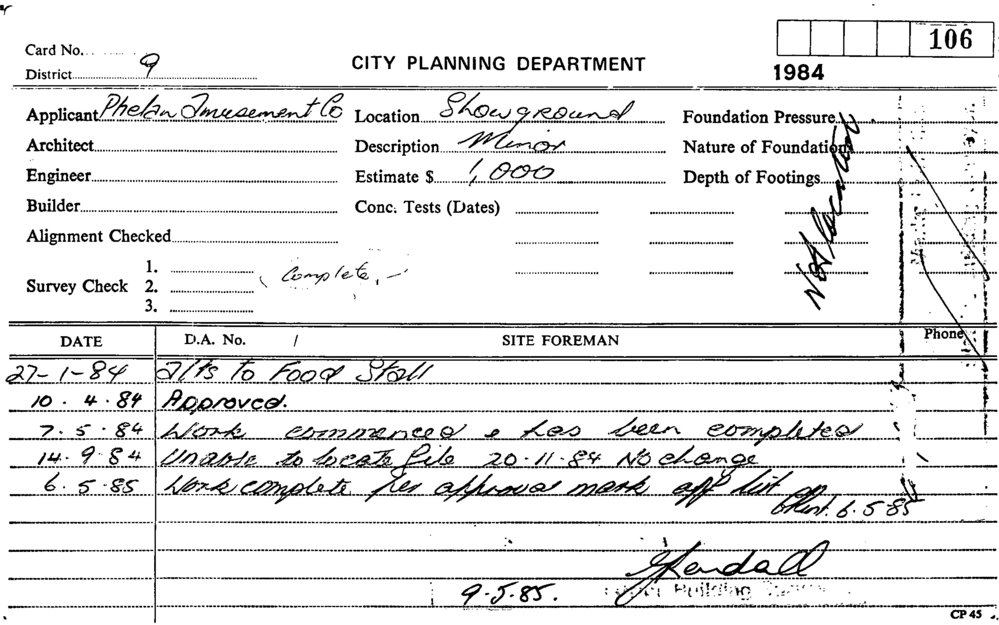 106
Card No.
District 9
CITY PLANNING DEPARTMENT
1984
Applicant Phelan Amusement Co Location Showground Foundation Pressure
Architect Description Minor Nature of Foundation
Engineer Estimate $ 1,000 Depth of Footings
Builder Conc. Tests (Dates)
Alignment Checked
Survey Check 1. 2. 3.
Complete
DATE D.A. No. / SITE FOREMAN Phone
27-1-84 alts to Food Stall
10.4.84 Approved.
7.5.84 Work commenced & has been completed
14.9.84 Unable to locate file 20-11-84 No change
6.5.85 Work complete per approval mark off list on
6.5.85
Kendall
9.5.85. Building
CP 45